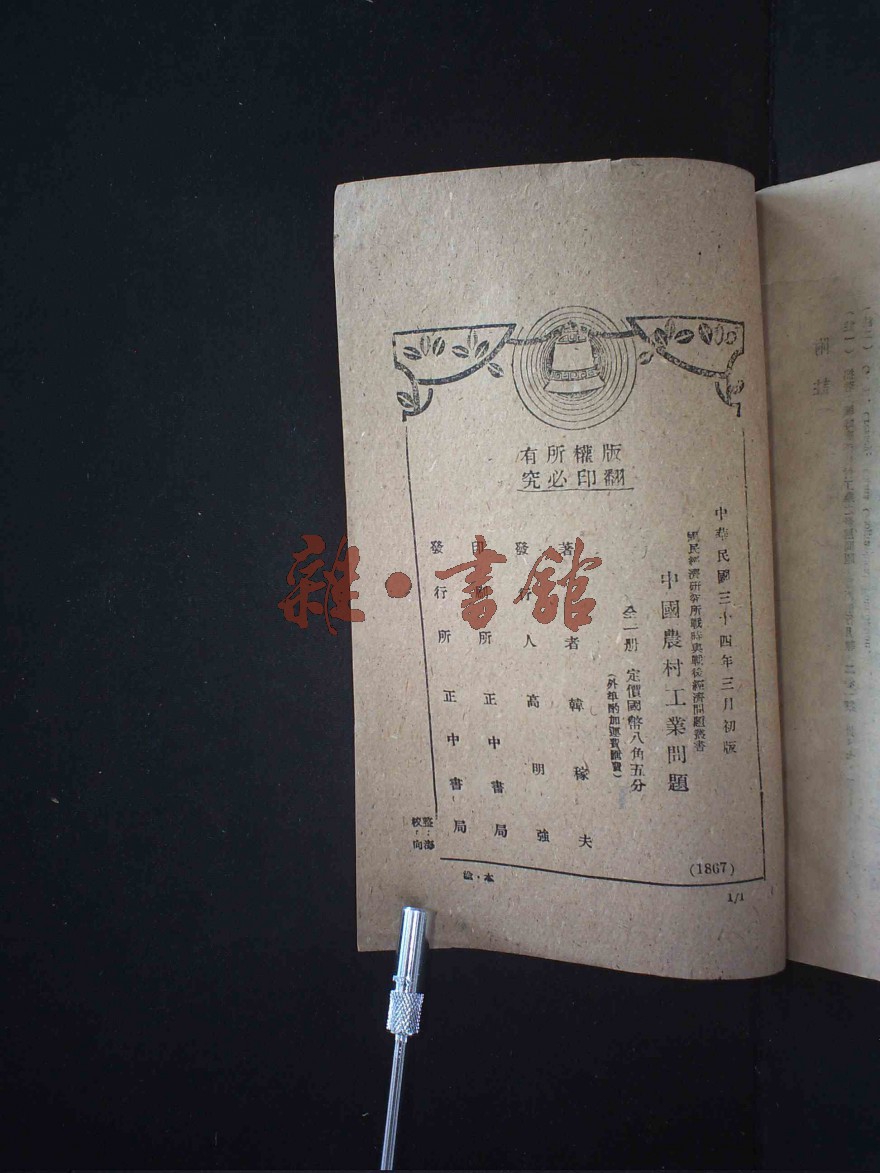 版權所有
翻印必究
中華民國三十四年三月初版
國民經濟研究所戰時與戰後經濟問題叢書
中國農村工業問題
全一册 定價國幣八角五分
(外埠酌加運費匯費)
著者 韓稼夫
發行人 高明強
印刷所 正中書局
發行所 正中書局
(1867)
1/1
雜·書館
附註